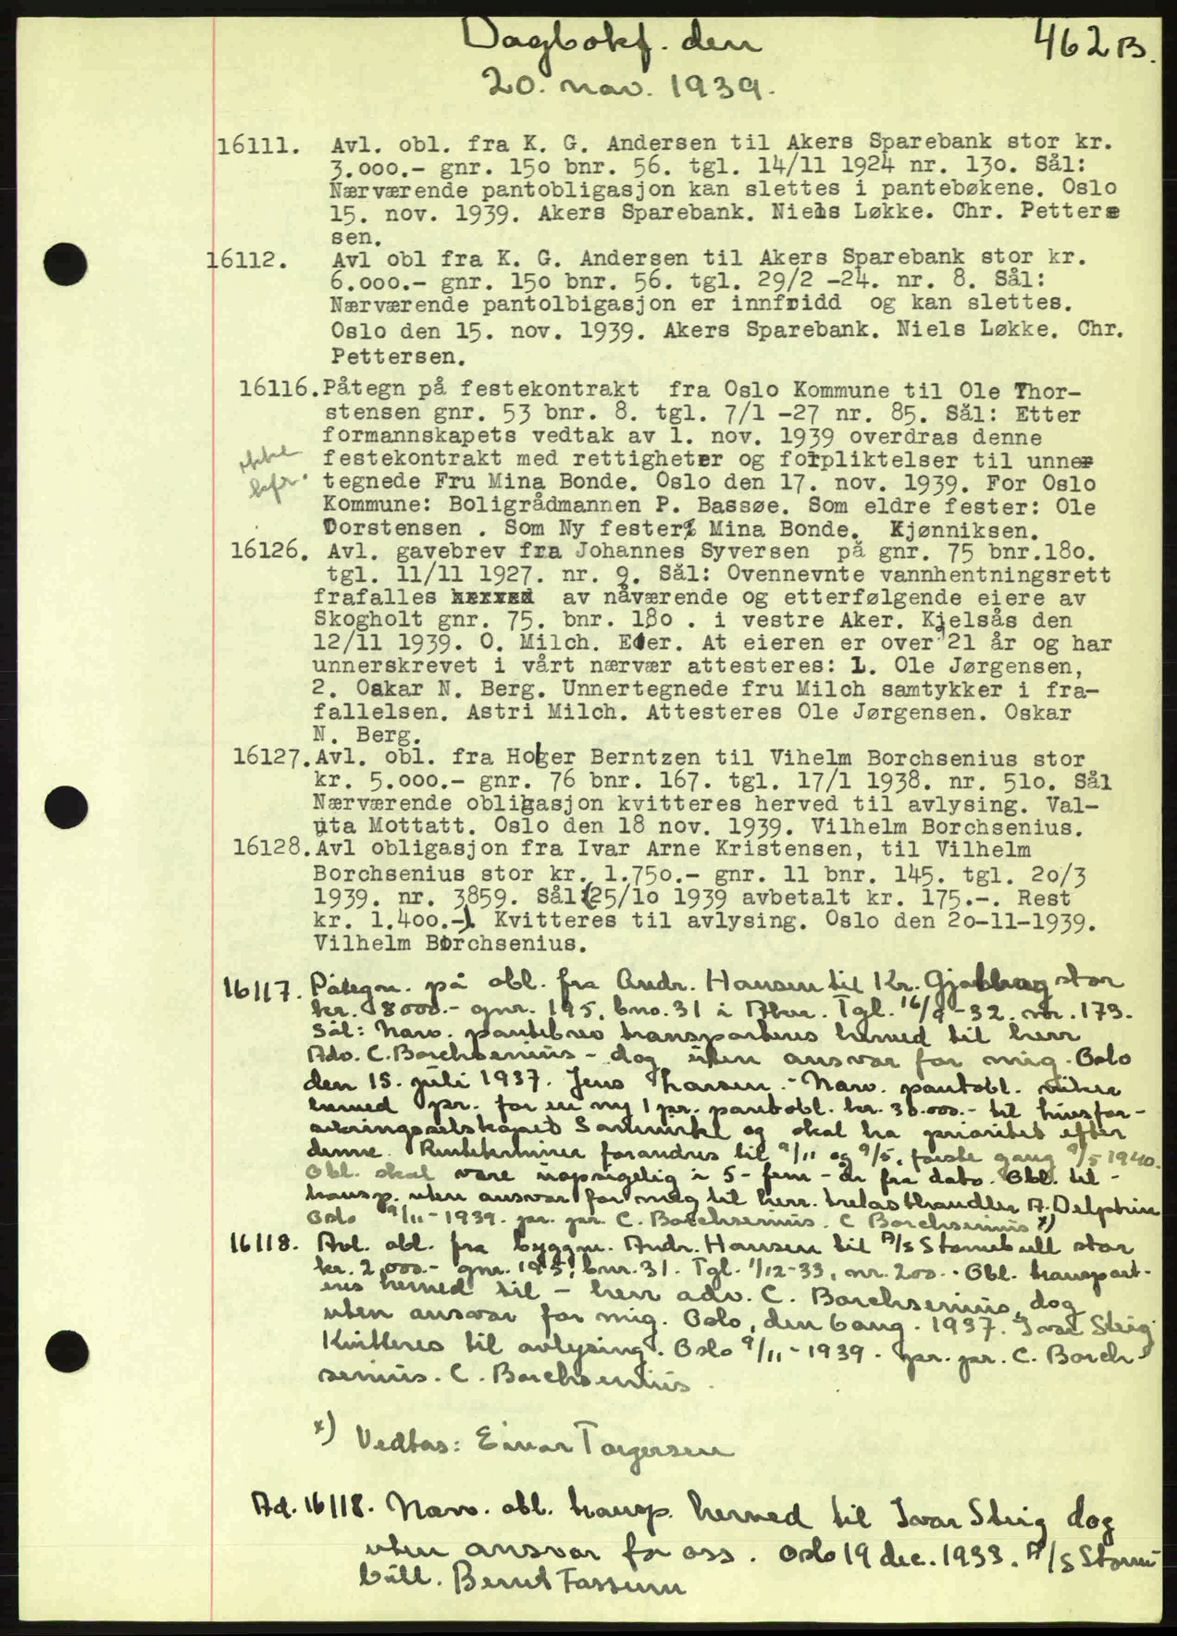 Dagbokf. den
462 B.
20. nov. 1939.
16111. Avl. obl. fra K. G. Andersen til Akers Sparebank stor kr.
3.000.- gnr. 150 bnr. 56. tgl. 14/11 1924 nr. 130. Sål:
Nærværende pantobligasjon kan slettes i pantebøkene. Oslo
15. nov. 1939. Akers Sparebank. Niels Løkke. Chr. Petter=
sen.
16112. Avl obl fra K. G. Andersen til Akers Sparebank stor kr.
6.000.- gnr. 150 bnr. 56. tgl. 29/2 -24. nr. 8. Sål:
Nærværende pantolbigasjon er innfridd og kan slettes.
Oslo den 15. nov. 1939. Akers Sparebank. Niels Løkke. Chr.
Pettersen.
16116. Påtegn på festekontrakt fra Oslo Kommune til Ole Thor-
stensen gnr. 53 bnr. 8. tgl. 7/1 -27 nr. 85. Sål: Etter
formannskapets vedtak av 1. nov. 1939 overdras denne
ikke festekontrakt med rettigheter og forpliktelser til unner
tegnede Fru Mina Bonde. Oslo den 17. nov. 1939. For Oslo
Kommune: Boligrådmannen P. Bassøe. Som eldre fester: Ole
Dorstensen . Som Ny fester: Mina Bonde. Kjønniksen.
16126. Avl. gavebrev fra Johannes Syversen på gnr. 75 bnr.180.
tgl. 11/11 1927. nr. 9. Sål: Ovennevnte vannhentningsrett
frafalles av nåværende og etterfølgende eiere av
Skogholt gnr. 75. bnr. 180 . i vestre Aker. Kjelsås den
12/11 1939. O. Milch. Eier. At eieren er over 21 år og har
unnerskrevet i vårt nærvær attesteres: 1. Ole Jørgensen,
2. Oskar N. Berg. Unnertegnede fru Milch samtykker i fra-
fallelsen. Astri Milch. Attesteres Ole Jørgensen. Oskar
N. Berg.
16127. Avl. obl. fra Holger Berntzen til Vihelm Borchsenius stor
kr. 5.000.- gnr. 76 bnr. 167. tgl. 17/1 1938. nr. 510. Sål
Nærværende obligasjon kvitteres herved til avlysing. Val-
uta Mottatt. Oslo den 18 nov. 1939. Vilhelm Borchsenius.
16128. Avl obligasjon fra Ivar Arne Kristensen, til Vilhelm
Borchsenius stor kr. 1.750.- gnr. 11 bnr. 145. tgl. 20/3
1939. nr. 3859. Sål:(25/10 1939 avbetalt kr. 175.-. Rest
kr. 1.400.-). Kvitteres til avlysing. Oslo den 20-11-1939.
Vilhelm Borchsenius.
16117. Påtegn. på obl. fra Andr. Hansen til Kr. stor
kr. 8000.- gnr. 195, bno. 31 i Aker. Tgl. 16/9-32. nr. 173.
Sål: Nærv. pantebrev transporteres herved til herr
Adv. C. Borchsenius - dog uten ansvar for mig. Oslo
den 15. juli 1937. Jens Hansen. - Nærv. pantobl. viker
herved pr. for en ny 1 pr. pantobl. kr. 30.000.- til livsfor-
sikringsselskapet Samvirke og skal ha prioritet efter
denne. Renteterminer forandres til 9/11 og 9/5, første gang 9/5 1940.
Obl. skal være uopsigelig i 5 - fem - år fra dato. Obl. til -
transp. uten ansvar for meg til herr. trelasthandler A. Delphin
Oslo 9/11-1939. pr. pr. C. Borchsenius. C Borchsenius x)
16118. Avl. obl. fra byggm. Andr. Hansen til A/S Stormbull stor
kr. 2.000.- gnr. 195, bnr. 31. Tgl. 1/12-33, nr. 200. - Obl. transport-
eres herved til - herr adv. C. Borchsenius, dog
uten ansvar for mig. Oslo, den 6 aug. 1937. Ivar Steig
Kvitteres til avlysing. Oslo 9/11-1939. pr. pr. C. Borch-
senius. C. Borchsenius.
x) Vedtas: Einar Torgersen
Ad. 16118. Nærv. obl. transp. herved til Ivar Steig dog
uten ansvar for oss. Oslo 19 dec. 1933. A/S Storm-
bull. Bernt Fossum